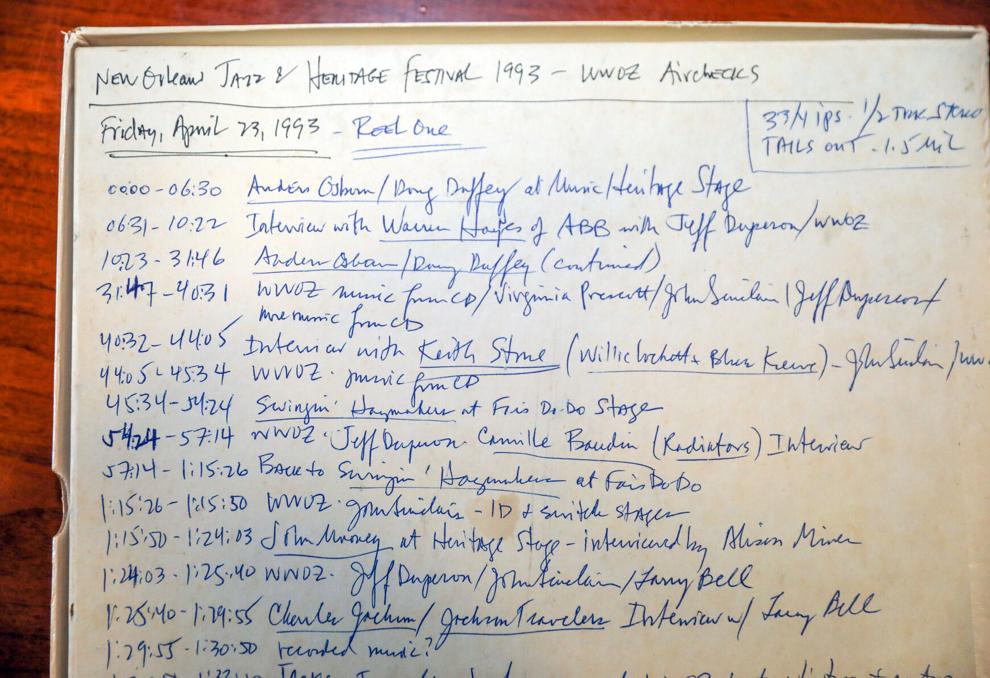 New Orleans Jazz & Heritage Festival 1993 – WWOZ Airchecks
Friday, April 23, 1993 – Reel One
3 3/4 ips. 1/2 Trk Stereo
Tails out - 1.5 Mil
00:00 - 06:30 Anders Osborn / Doug Duffey at Music Heritage Stage
06:31 - 10:22 Interview with Warren Haynes of ABB with Jeff Duperon / WWOZ
10:23 - 31:46 Anders Osborn / Doug Duffey (continued)
31:47 - 40:31 WWOZ music from CD / Virginia Prescott / John Sinclair / Jeff Duperon /
more music from CD
40:32 - 44:05 Interview with Keith Stone (Willie Lockett & Blues Krewe) - John Sinclair /
44:05 - 45:34 WWOZ - music from CD
45:34 - 54:24 Swingin' Haymakers at Fais Do-Do Stage
54:24 - 57:14 WWOZ - Jeff Duperon - Camille Baudoin (Radiators) Interview
57:14 - 1:15:26 Back to Swingin' Haymakers at Fais Do Do
1:15:26 - 1:15:50 WWOZ - John Sinclair - ID & switch stages
1:15:50 - 1:24:03 John Mooney at Heritage Stage - interviewed by Alison Miner
1:24:03 - 1:25:40 WWOZ - Jeff Duperon / John Sinclair / Larry Bell
1:25:40 - 1:29:55 Charles Jackson / Jackson Travelers Interview w/ Larry Bell
1:29:55 - 1:30:50 recorded music?